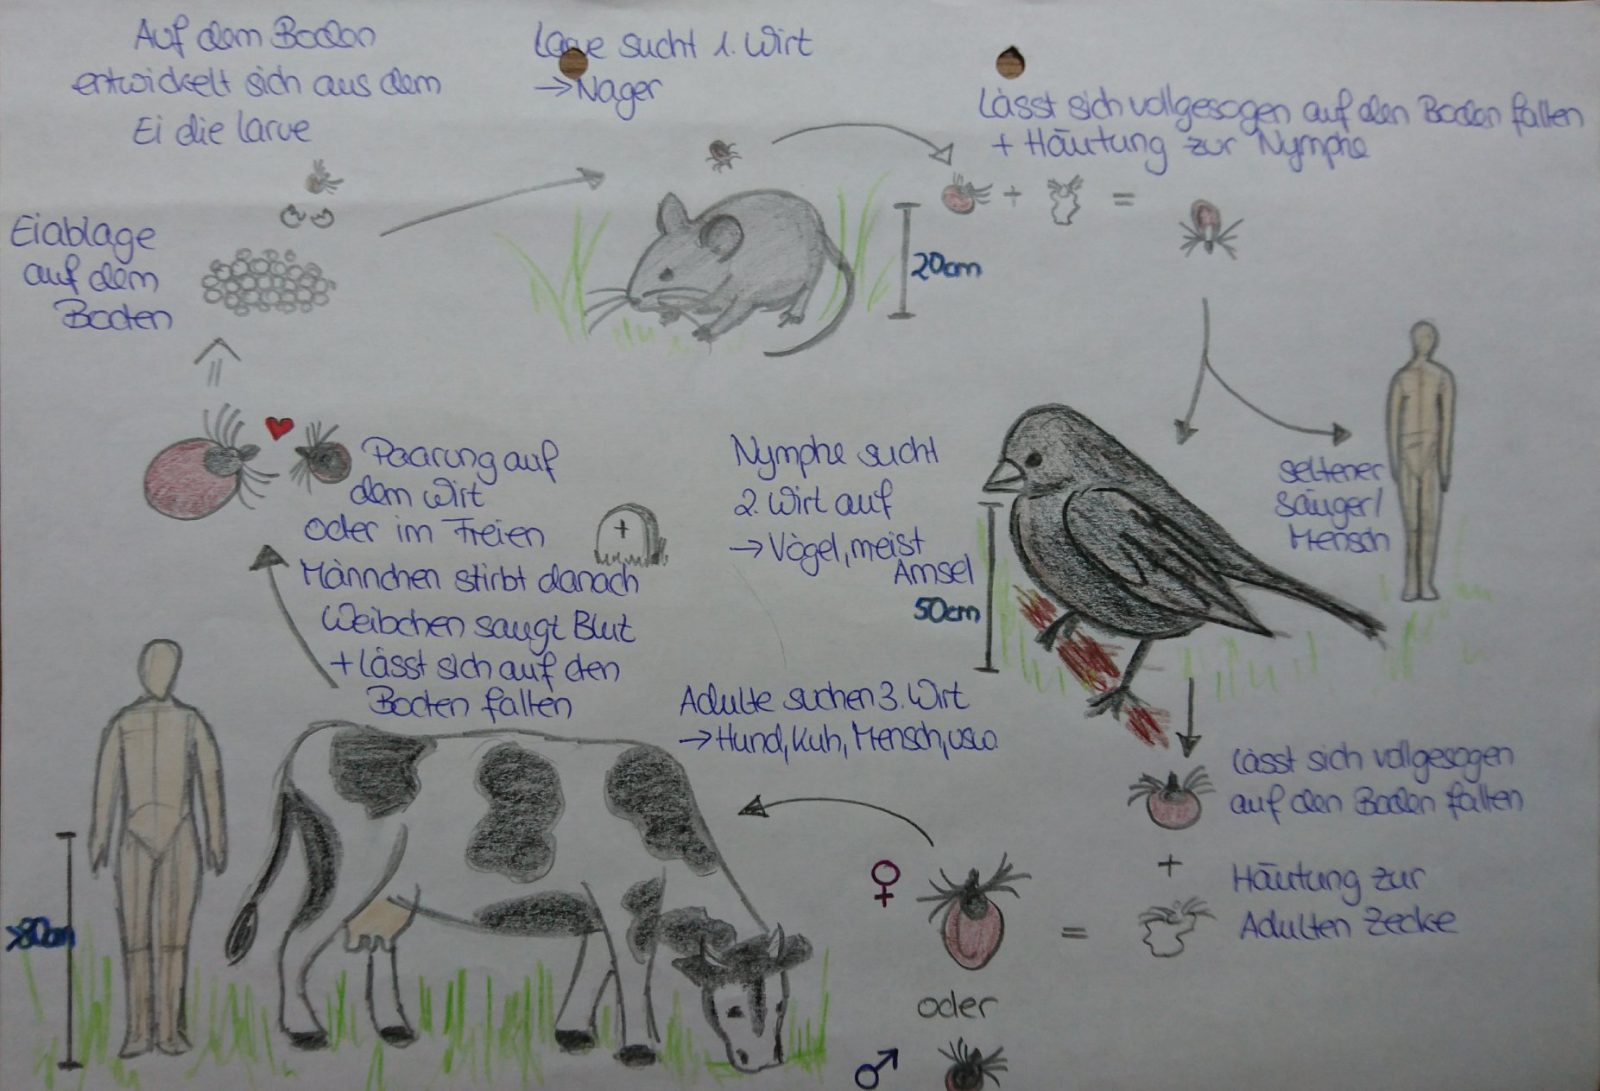 Auf dem Boden
entwickelt sich aus dem
Ei die Larve
Larve sucht 1. Wirt
→ Nager
Lässt sich vollgesogen auf den Boden fallen
+ Häutung zur Nymphe
+
=
20cm
Eiablage
auf dem
Boden
seltener
Säuger/
Mensch
Nymphe sucht
2. Wirt auf
→ Vögel, meist
Amsel
50cm
Paarung auf
dem Wirt
oder im Freien
Männchen stirbt danach
Weibchen saugt Blut
+ Lässt sich auf den
Boden fallen
+
Adulte suchen 3. Wirt
→ Hund, Kuh, Mensch, usw.
Lässt sich vollgesogen
auf den Boden fallen
+
Häutung zur
Adulten Zecke
♀
=
oder
♂
>80cm